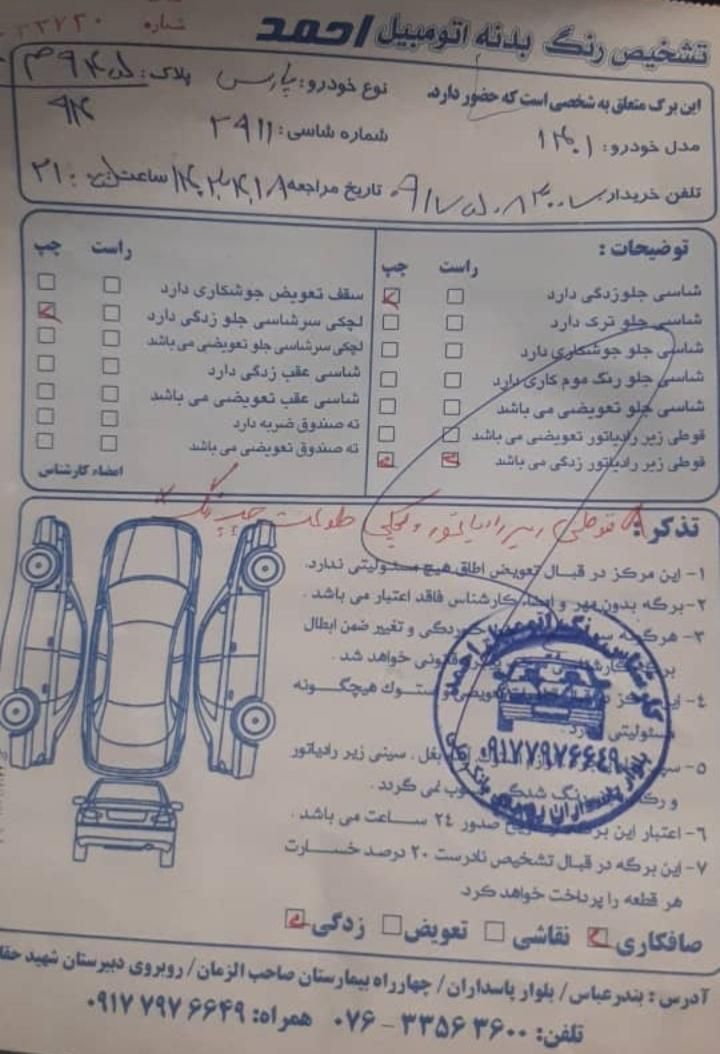 تشخیص رنگ بدنه اتومبیل احمد
شماره
این برگ متعلق به شخصی است که حضور دارد.
نوع خودرو: پارس
پلاک:
مدل خودرو: ۱۴۰۱
شماره شاسی: ۳۹۱۱
تلفن خریدار:
تاریخ مراجعه
ساعت
توضیحات :
راست چپ
شاسی جلوزدگی دارد
شاسی جلو ترک دارد
شاسی جلو جوشکاری دارد
شاسی جلو رنگ موم کاری دارد
شاسی جلو تعویضی می باشد
قوطی زیر رادیاتور تعویضی می باشد
قوطی زیر رادیاتور زدگی می باشد
راست چپ
سقف تعویض جوشکاری دارد
لچکی سرشاسی جلو زدگی دارد
لچکی سرشاسی جلو تعویضی می باشد
شاسی عقب زدگی دارد
شاسی عقب تعویضی می باشد
ته صندوق ضربه دارد
ته صندوق تعویضی می باشد
امضاء کارشناس
تذکر:
قوطی زیر رادیاتور و لچکی
۱- این مرکز در قبال تعویض اطاق هیچ مسئولیتی ندارد.
۲- برگه بدون مهر و امضاء کارشناس فاقد اعتبار می باشد .
۳- هرگونه خوردگی و تغییر ضمن ابطال
قانونی خواهد شد .
۴- تعویضی و ستوک هیچگونه
مسئولیتی ندارد .
۵- بغل ، سینی زیر رادیاتور
و رنگ شدگی محسوب نمی گردد .
۶- اعتبار این برگه از تاریخ صدور ۲۴ ساعت می باشد .
۷- این برگه در قبال تشخیص نادرست ۲۰ درصد خسارت
هر قطعه را پرداخت خواهد کرد.
کارشناسی رنگ اتومبیل احمد
۰۹۱۷۷۹۷۶۶۴۹
صافکاری نقاشی تعویض زدگی
آدرس : بندرعباس / بلوار پاسداران / چهارراه بیمارستان صاحب الزمان / روبروی دبیرستان شهید
تلفن: ۳۳۵۶۳۶۰۰ - ۰۷۶ همراه: ۰۹۱۷۷۹۷۶۶۴۹